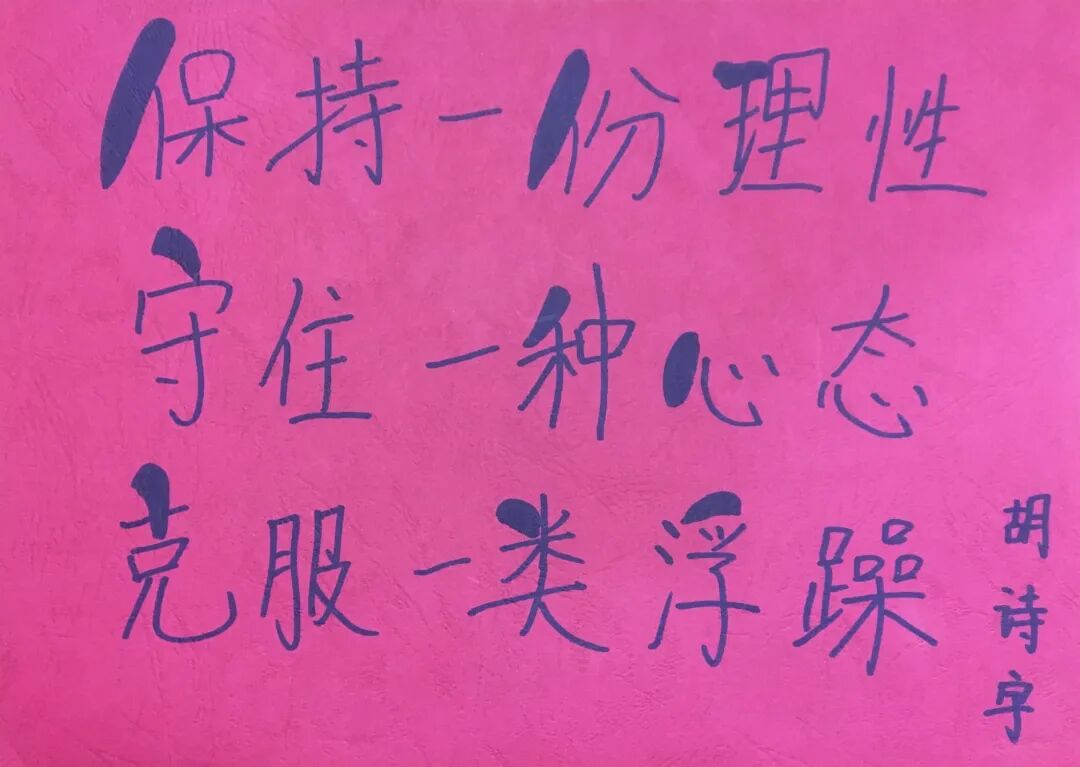 保持一份理性
守住一种心态
克服一类浮躁
胡诗字